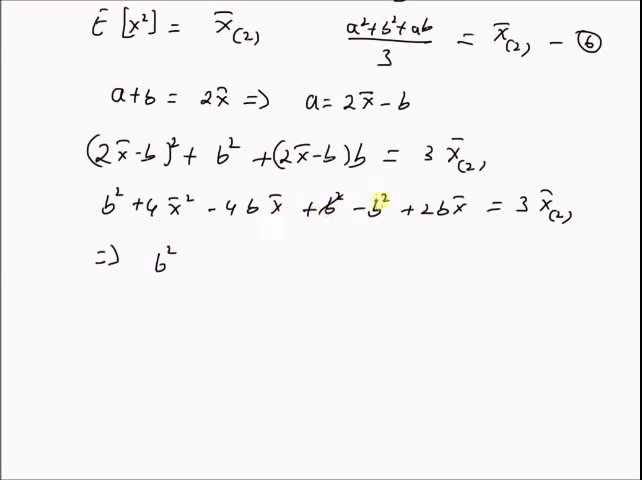 E[x²] = x̄₍₂₎ (a²+b²+ab)/3 = x̄₍₂₎ - ⑥
a+b = 2x̄ => a = 2x̄ - b
(2x̄-b)² + b² + (2x̄-b)b = 3 x̄₍₂₎
b² + 4x̄² - 4bx̄ + b² - b² + 2bx̄ = 3 x̄₍₂₎
=> b²